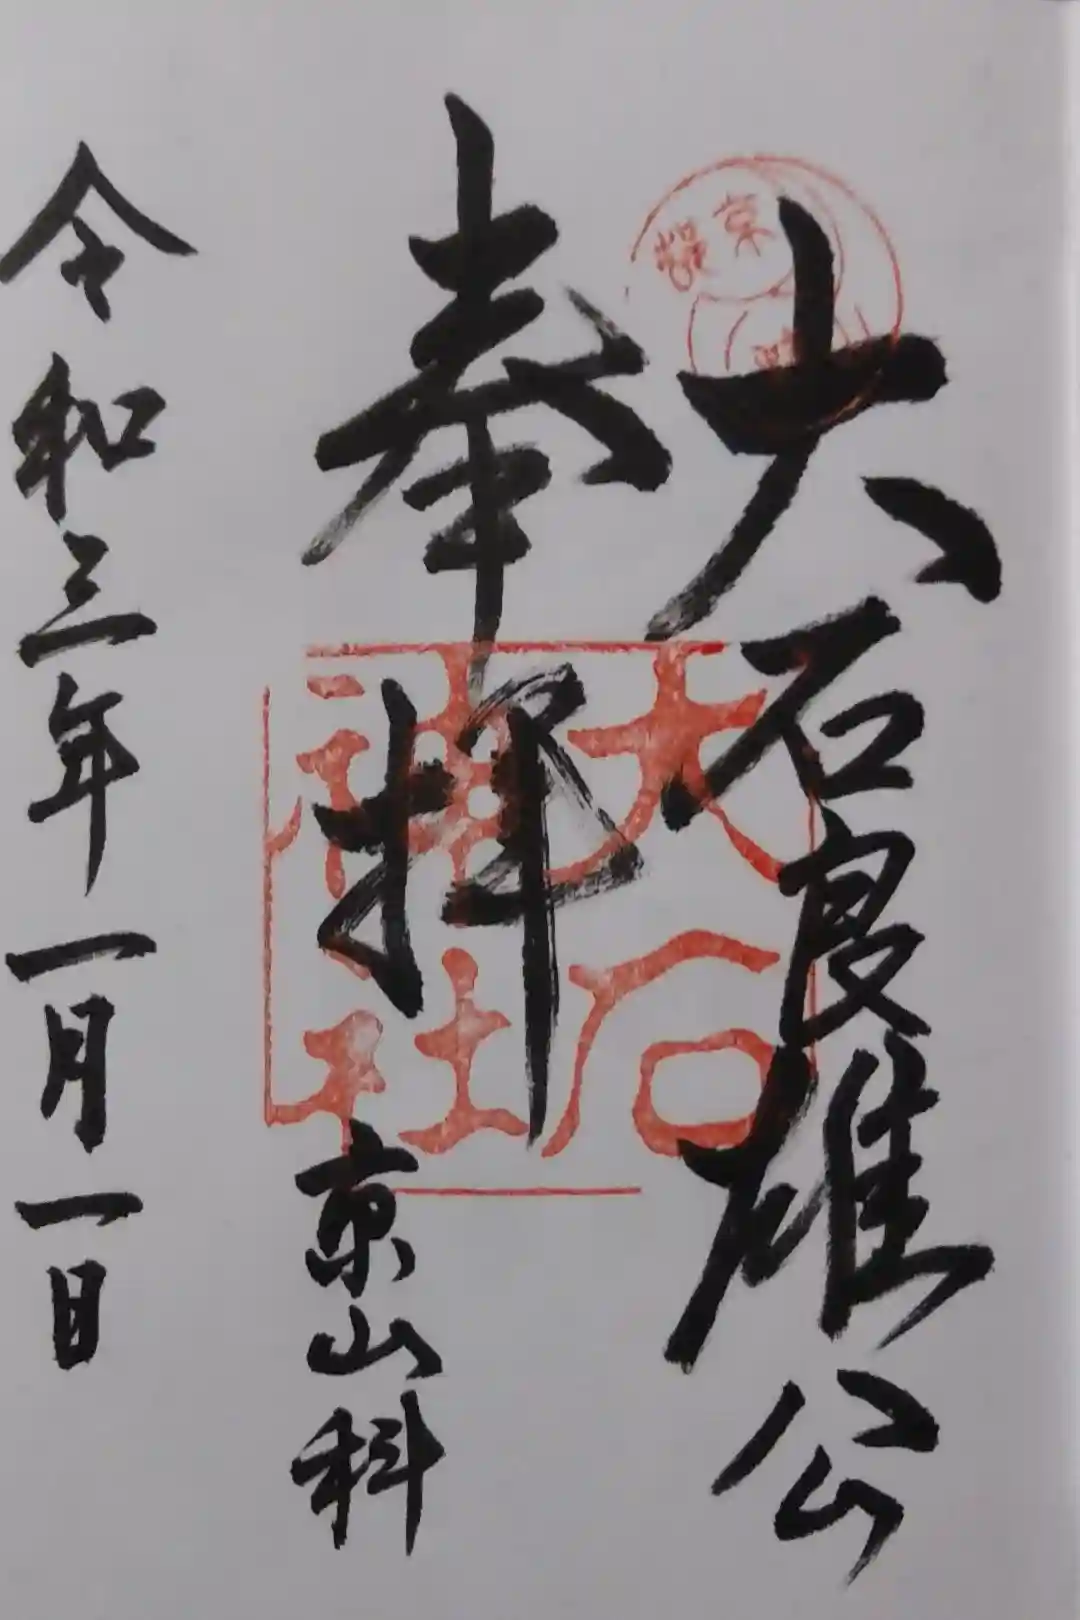 大石良雄公
奉拝
京山科
令和三年一月一日
大石
神社